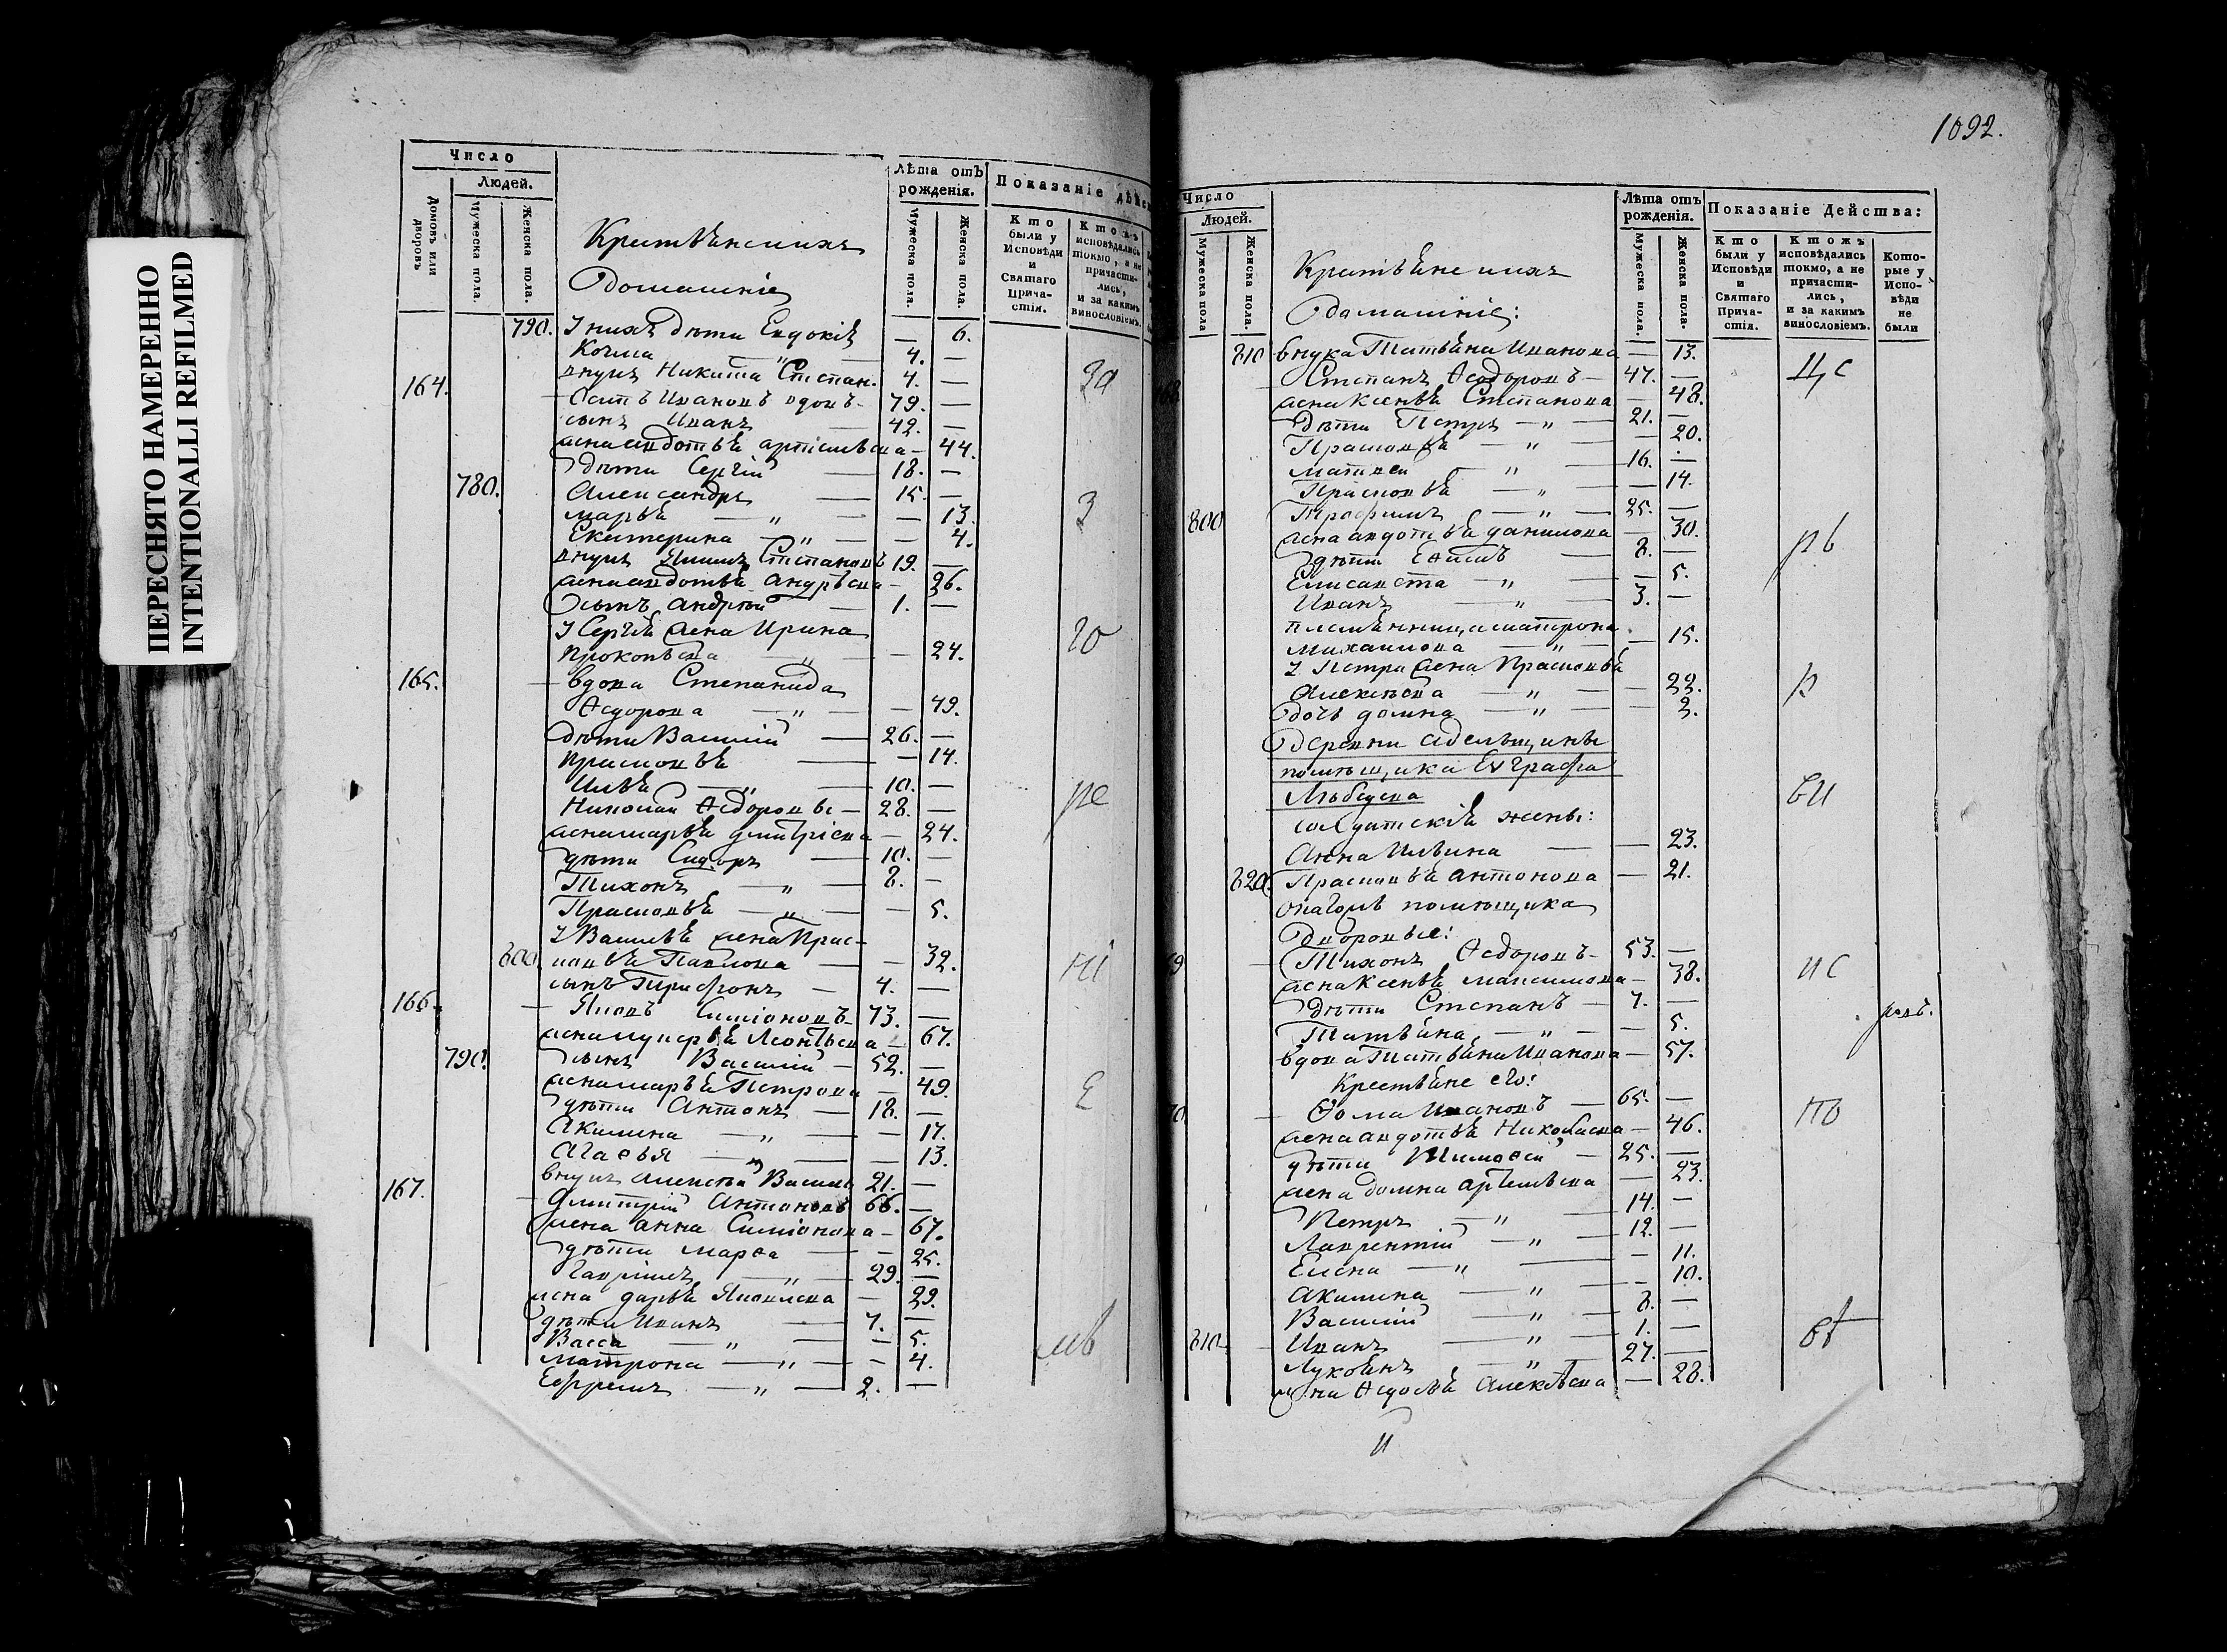 ПЕРЕСНЯТО НАМЕРЕННО
INTENTIONALLI REFILMED
Число
Людей.
Домовъ или дворовъ.
Мужеска пола.
Женска пола.
Лѣта отъ рожденія.
Мужеска пола.
Женска пола.
Показаніе дѣйс
Кто были у Исповѣди и Святаго Прича-стія.
Ктожъ исповѣдались токмо, а не причасти-лись, и за какимъ винословіемъ.
Крестьянскихъ
Домашніе
790. У нихъ дѣти Евдокія — 6.
Козма 4. —
внукъ Никита Степан. 4. —
164. Ивановъ вдовъ 79. —
сынъ Иванъ 42. —
жена авдотья — 44.
дѣти Сергій 18. —
780. Александръ 15. —
марья — 13.
Екатерина — 4.
внукъ Степановъ 19. —
жена авдотья андрѣева — 26.
сынъ андрей 1. —
У Сергія жена Ирина
Прокопьева — 24.
165. вдова Степанида
Ѳедорова — 49.
дѣти Василій 26. —
Прасковья — 14.
Илья 10. —
Николай Ѳедоровъ 28. —
жена марья дмитріева — 24.
дѣти Сидоръ 10. —
Тихонъ 8. —
Прасковья — 5.
У Василья жена Прас-
800. ковья Павлова — 32.
сынъ Трифонъ 4. —
166. Яковъ Симіоновъ 73. —
жена Леонтьева — 67.
790. сынъ Василій 52. —
жена марья Петрова — 49.
дѣти Антонъ 18. —
Акилина — 17.
Агаѳья — 13.
внукъ алексѣй Василь 21. —
167. Дмитрій Антоновъ 66. —
жена анна Симіонова — 67.
дѣти марѳа — 25.
Гаврилъ 29. —
жена дарья Яковлева — 29.
дѣти Иванъ 7. —
Васса — 5.
Матрона — 4.
Ефремъ 2. —
1092.
Число
Людей.
Мужеска пола
Женска пола.
Лѣта отъ рожденія.
Мужеска пола.
Женска пола.
Показаніе Действа:
Кто были у Исповѣди и Святаго Прича-стія.
Ктожъ исповѣдались токмо, а не причасти-лись, и за какимъ винословіемъ.
Кото-рые у Испо-вѣди не были
Крестьянскихъ
Домашніе:
810 внука Татьяна Иванова — 13.
168 Степанъ Ѳедоровъ 47. —
жена Ксенья Степанова — 48.
дѣти Петръ 21. —
Прасковья — 20.
Матвей 16. —
Прасковья — 14.
800 Трофимъ 25. —
жена авдотья данилова — 30.
дѣти 8. —
Елисавета — 5.
Иванъ 3. —
племянница матрона
михайлова — 15.
У Петра жена Прасковья
Алексѣева — 22.
дочь домна — 2.
Деревни
помѣщика Евграфа
Лебедева
солдатскія жены:
Анна Ильина — 23.
820. Прасковья антонова — 21.
онагожъ помѣщика
Дворовые:
69 Тихонъ Ѳедоровъ 53. —
жена Ксенья максимова — 38.
дѣти Степанъ 7. —
Татьяна — 5.
вдова Татьяна Иванова — 57.
Крестьяне его:
70 Ѳома Ивановъ 65. —
жена авдотья Николаева — 46.
дѣти Тимоѳей 25. —
жена домна артемьева — 23.
Петръ 14. —
Лаврентій 12. —
Елена — 11.
Акилина — 10.
Василій 8. —
810 Иванъ 1. —
Лукьянъ 27. —
жена Ѳедосья Алексѣева — 28.